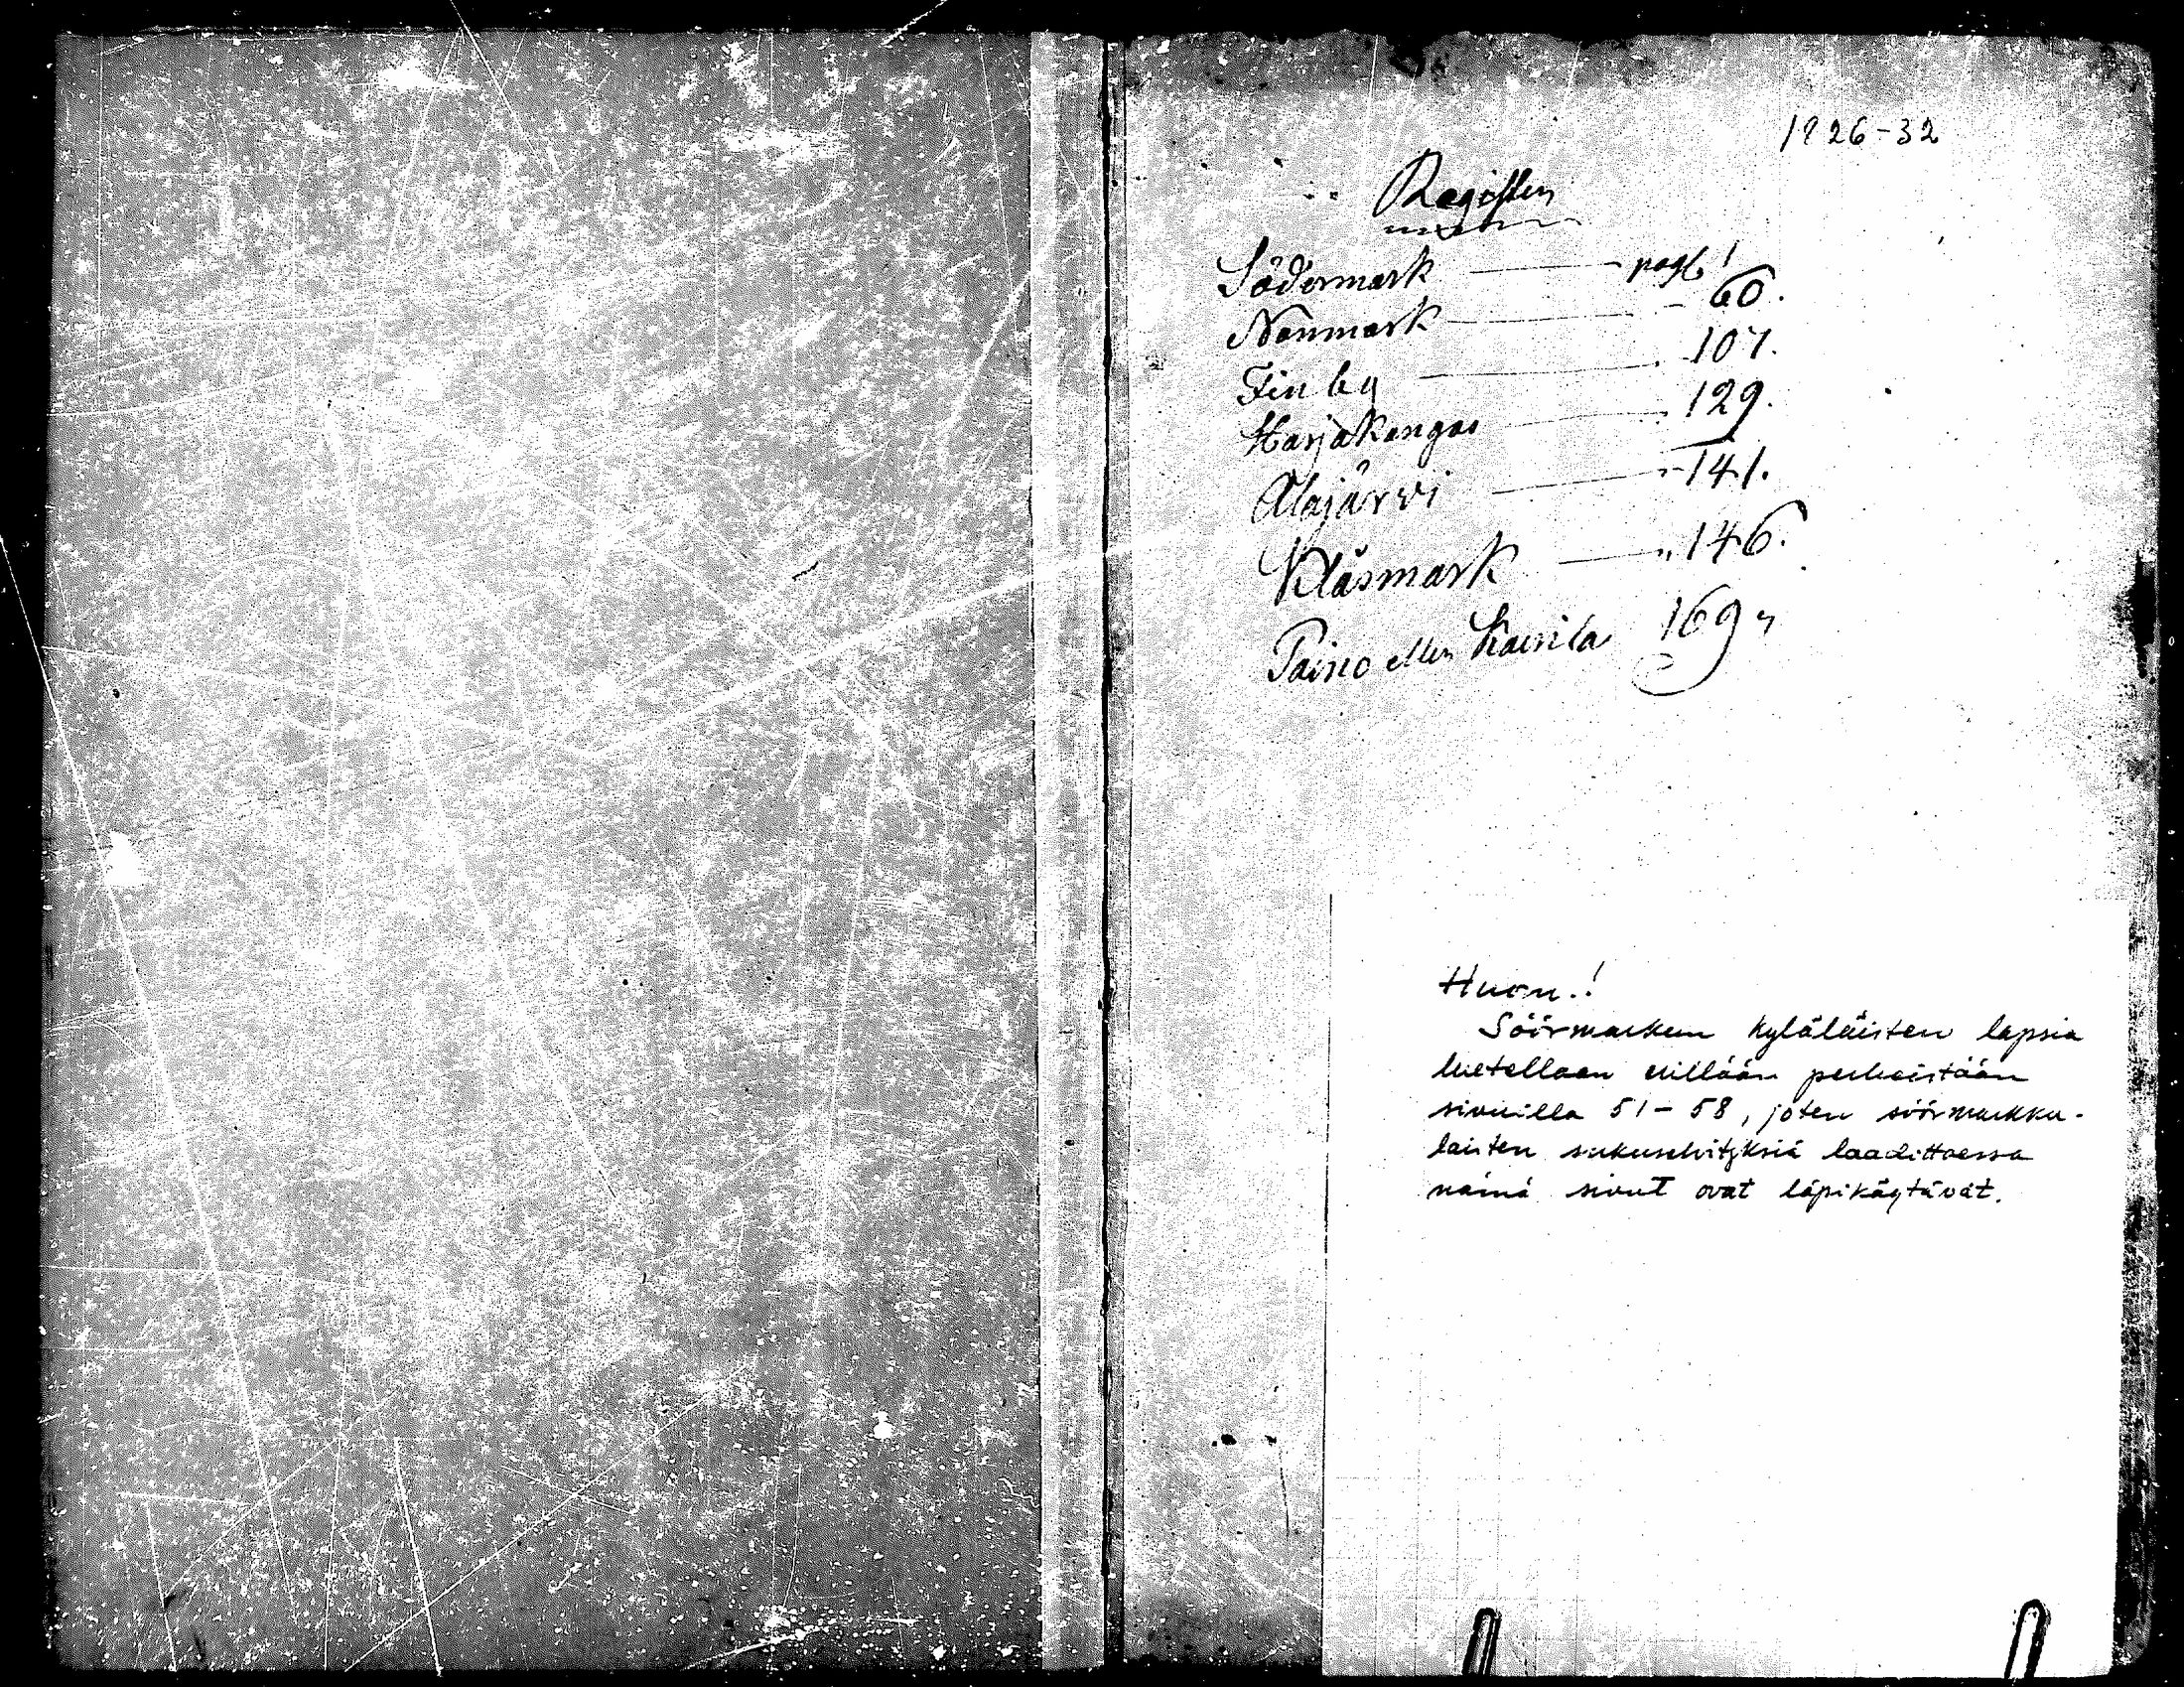 1826-32
Register
Södermark pag: 1
Norrmark 60.
Finby 107.
Harjakangas 129.
Alajärvi 141.
Klåsmark " 146.
Paino eller Kairila 169
Huom.!
Söörmarkun kyläläisten lapsia
luetellaan erillään perheistään
sivuilla 51-58, joten söörmarkku-
laisten sukuselvityksiä laadittaessa
nämä sivut ovat läpikäytävät.